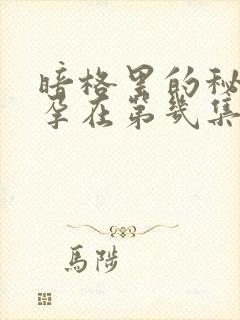 暗格里的秘
孕在第几集
馬陟